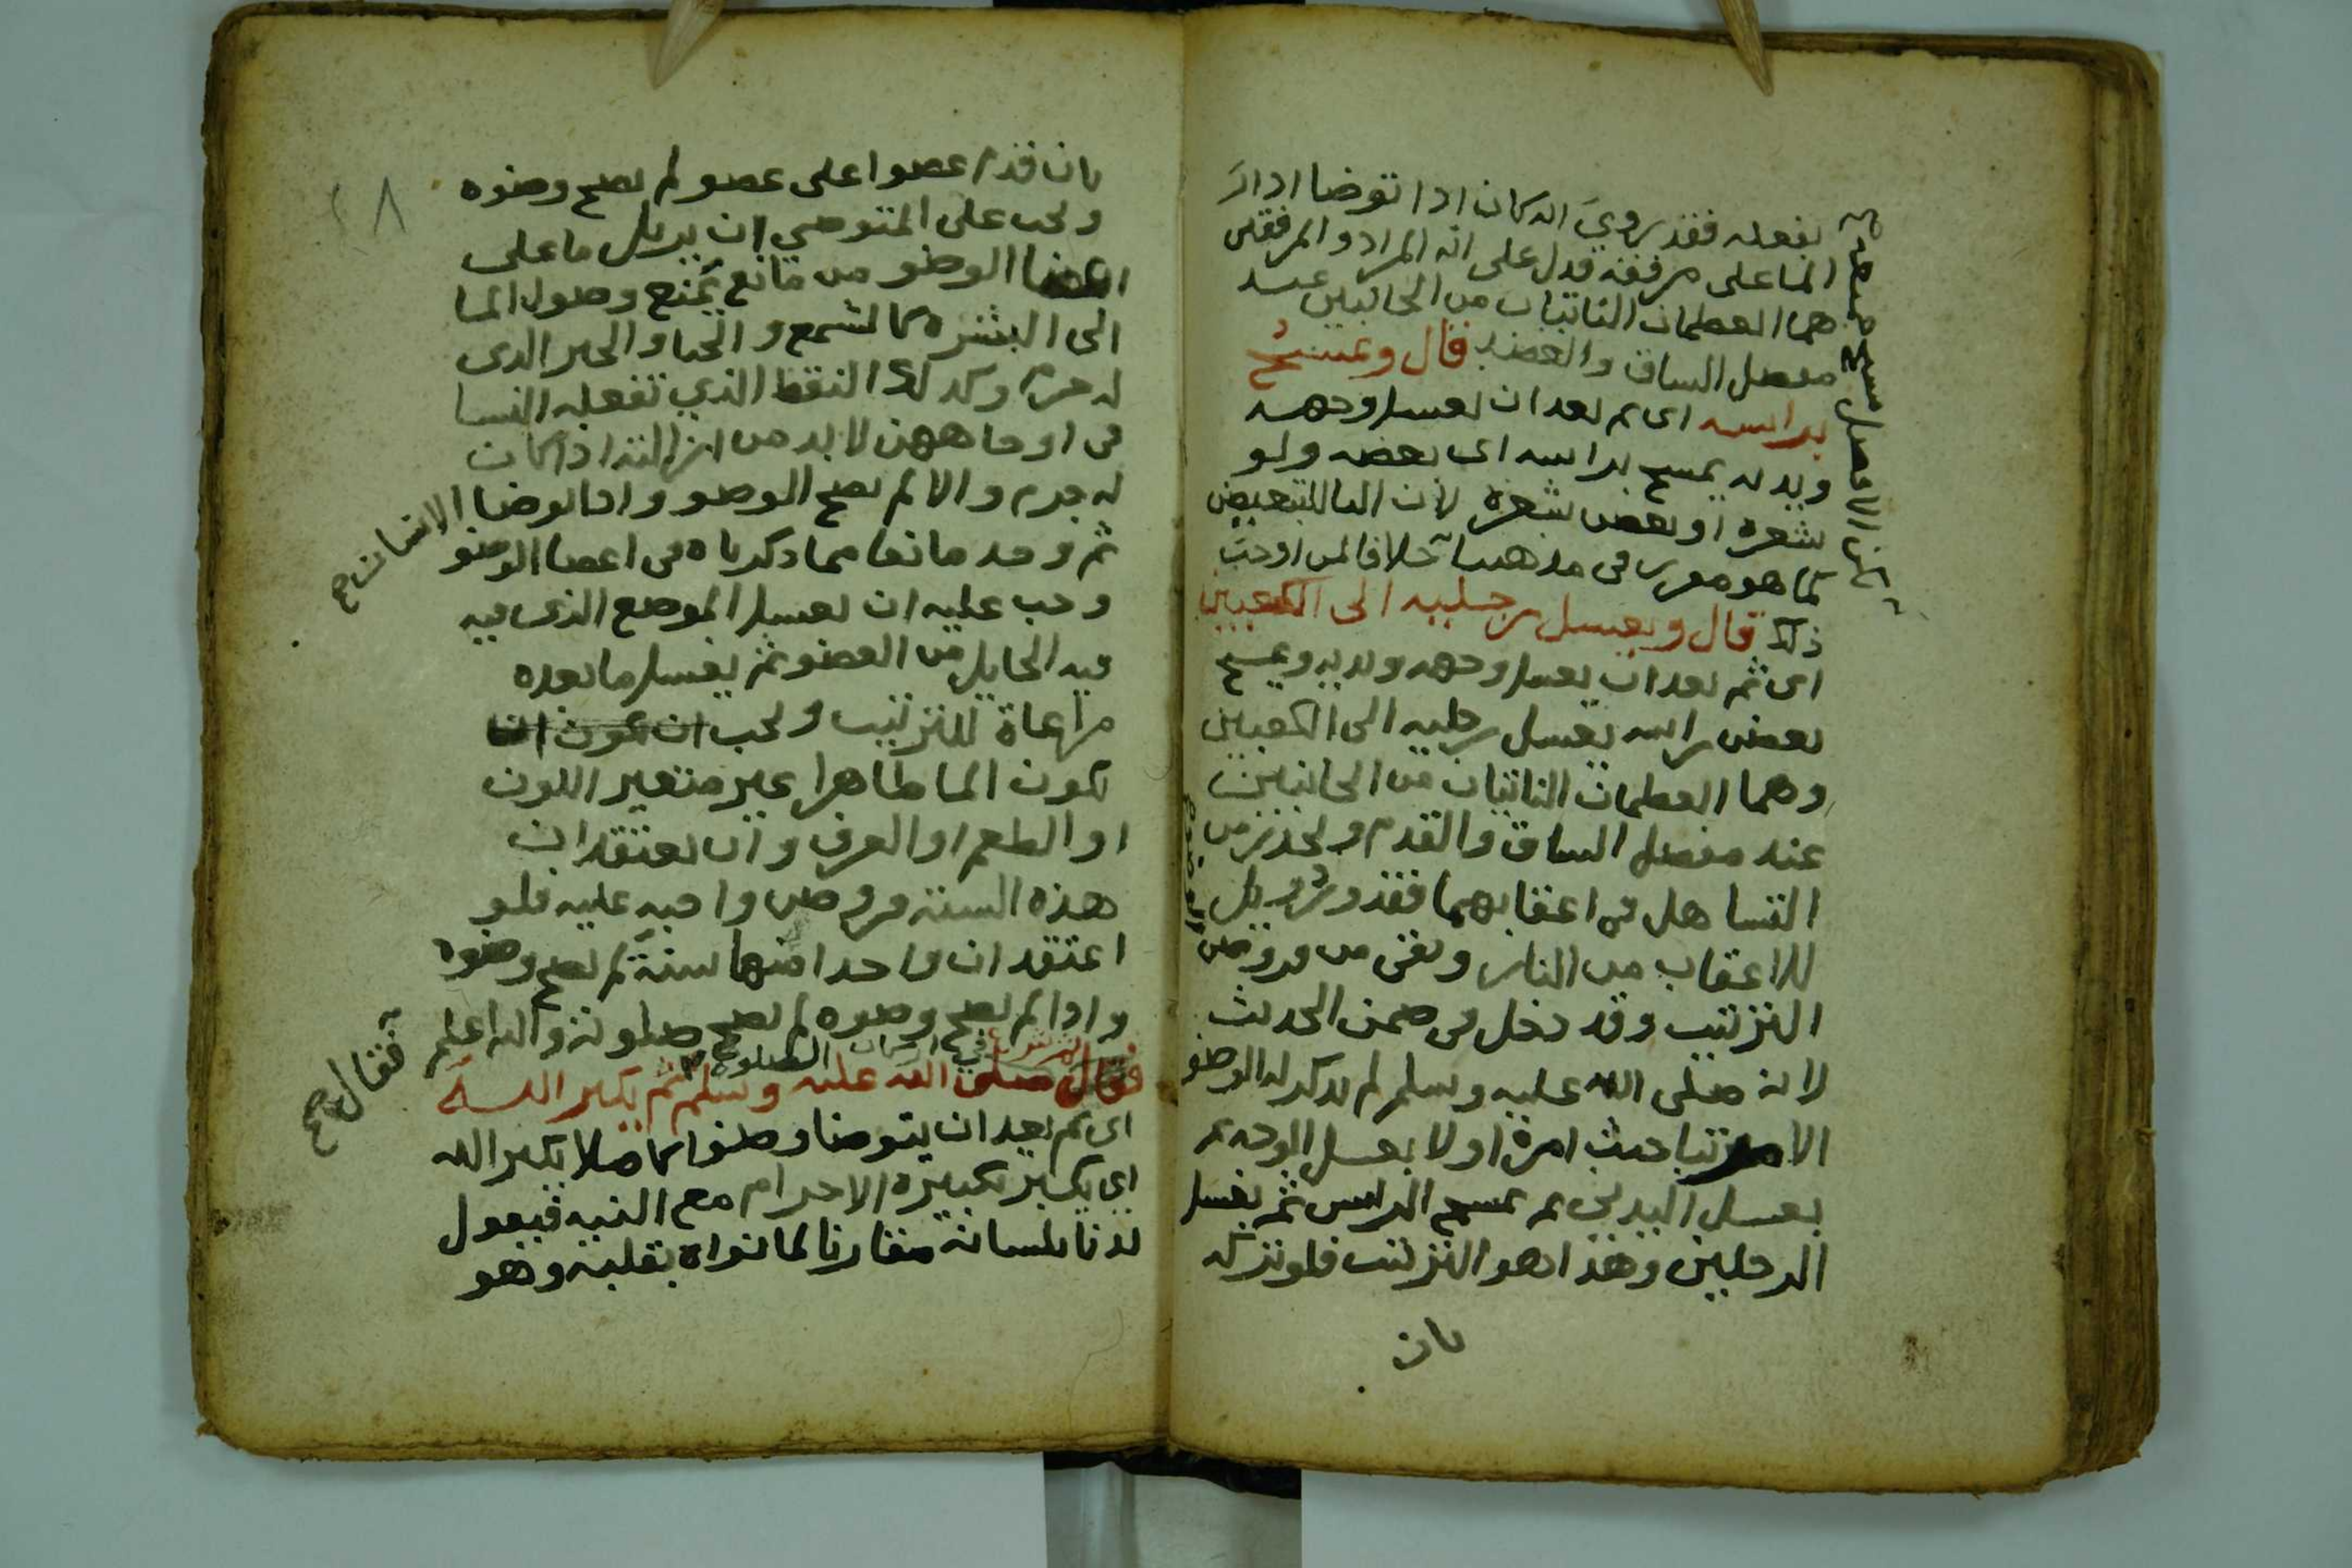 بفعله فقد روي انه كان اذا توضا ادار
الما على مرفقه فدل على انه المراد والمرفقين
هما العظمان الناتيان من الجانبين عند
مفصل الساق والعضد قال ويمسح
براسه اى ثم بعد ان يغسل وجهه
ويديه يمسح براسه اى بعضه ولو
شعرة او بعض شعرة لان البا للتبعيض
كما هو مقرر في مذهبنا خلافا لمن اوجب
ذلك قال ويغسل رجليه الى الكعبين
اى ثم بعد ان يغسل وجهه ويديه ويمسح
بعض راسه يغسل رجليه الى الكعبين
وهما العظمان الناتيان من الجانبين
عند مفصل الساق والقدم وليحذر من
التساهل في اعقابهما فقد ورد ويل
للاعقاب من النار وبقي من فروض الوضوء
الترتيب وقد دخل في ضمن الحديث
لانه صلى الله عليه وسلم لم يذكر له الوضو
الا مرتبا حيث امره اولا بغسل الوجه ثم
بغسل اليدين ثم بمسح الراس ثم بغسل
الرجلين وهذا هو الترتيب فلو تركه
بان
بان قدم عضوا على عضو لم يصح وضوه
ويجب على المتوضي ان يزيل ما على
اعضا الوضو من مانع يمنع وصول الما
الى البشرة كالشمع والحنا والحبر الذى
له جرم وكذلك النقط الذي تفعله النسا
في اوجاههن لا بد من ازالته اذا كان
له جرم والا لم يصح الوضو واذا توضا الانسان صح
ثم وجد مانعا مما ذكرناه في اعضا الوضو
وجب عليه ان يغسل الموضع الذى فيه
فيه الحايل من العضو ثم يغسل ما بعده
مراعاة للترتيب ويجب ان يكون انا
يكون الما طاهرا غير متغير اللون
او الطعم او العرف وان يعتقد ان
هذه الستة فروض واجبة عليه فلو
اعتقد ان واحدا منها سنة لم يصح وضوه
واذا لم يصح وضوه لم تصح صلوته والله اعلم
فقال صح
قال صلى الله عليه وسلم ثم يكبر الله
اى ثم بعد ان يتوضا وضوا كاملا يكبر الله
اي يكبر تكبيرة الاحرام مع النية فيقول
لدنا بلسانه مقارنا لما نواه بقلبه وهو